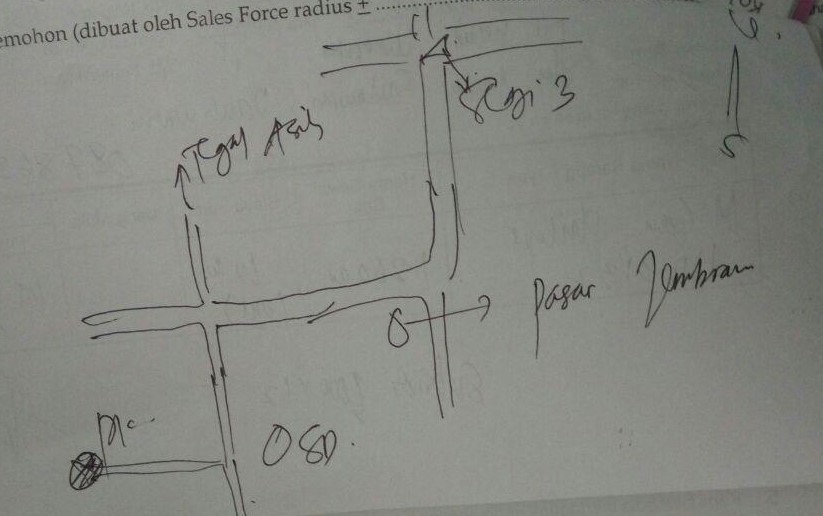 emohon (dibuat oleh Sales Force radius ±
Segi 3
Tegal Asih
Pasar Jembram
OSD.